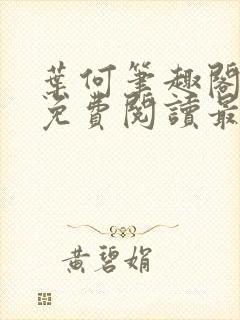 葉何筆趣閣
免費閱讀最
黃碧娟